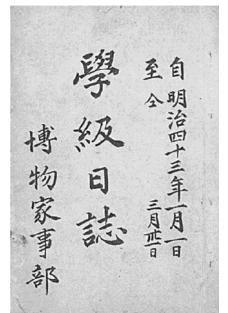 自明治四十三年一月一日
至仝三月卅一日
學級日誌
博物家事部